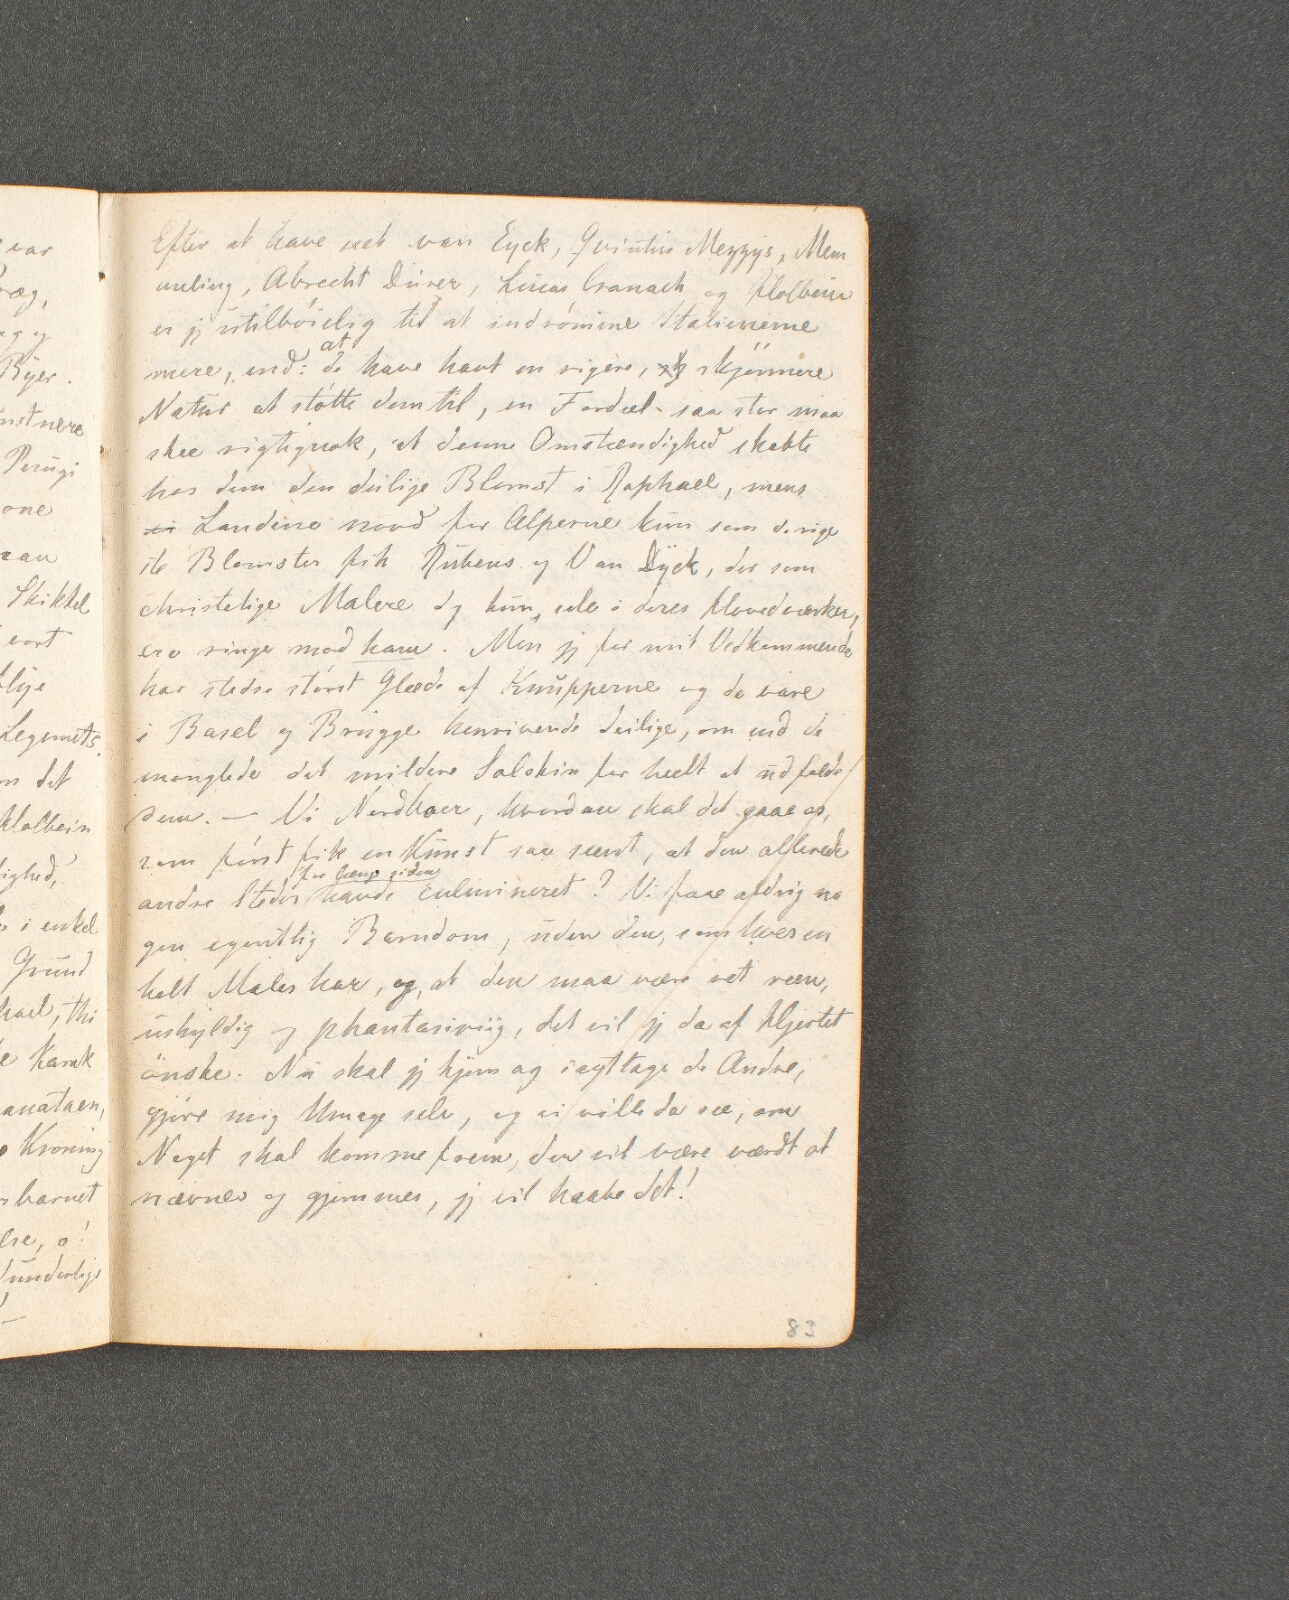 Efter at have seet van Eyck, Qvintus Mezzys, Mem
meling, Abrecht Dürer, Lucas Cranach og Holbein
er jeg utilböielig til at indrömme Italienerne
mere, end: at de have havt en rigere, skjönnere
Natur at stötte dem til, en Fordeel saa stor maa
skee rigtignok, at denne Omstændighed skabte
hos dem den deilige Blomst i Raphael, mens
Landene nord for Alperne kun som derige
ste Blomster fik Rubens og Van Dyck, der som
christelige Malere dg kun, selv i deres Hovedværker,
ere ringe mod ham. Men jeg for mit Vedkommende
har stedse störst Glæde af Knupperne og de vare
i Basel og Brügge henrivende deilige, om end de
manglede det mildere Solskin for heelt at udfolde
dem. — Vi Nordboer, hvordan skal det gaae os,
som först fik en Kunst saa seent, at den allerede
for længe siden
andre Steder havde culmineret? Vi faae aldrig no
gen egentlig Barndom, uden den, som hver en
kelt Maler har, og, at den maa være ret reen,
uskyldig og phantasiriig, det vil jeg da af Hjertet
önske. Nu skal jeg hjem og iagttage de Andre,
gjöre mig Umage selv, og vi ville da see, om
Noget skal komme frem, der vil være værdt at
nævnes og gjemmes, jeg vil haabe det!
83
var
Byer.
Perugi
one
Skikkel
Legemets
m det
Holbein
i enkel
Grund
thi
Karak
Kroning
barnet